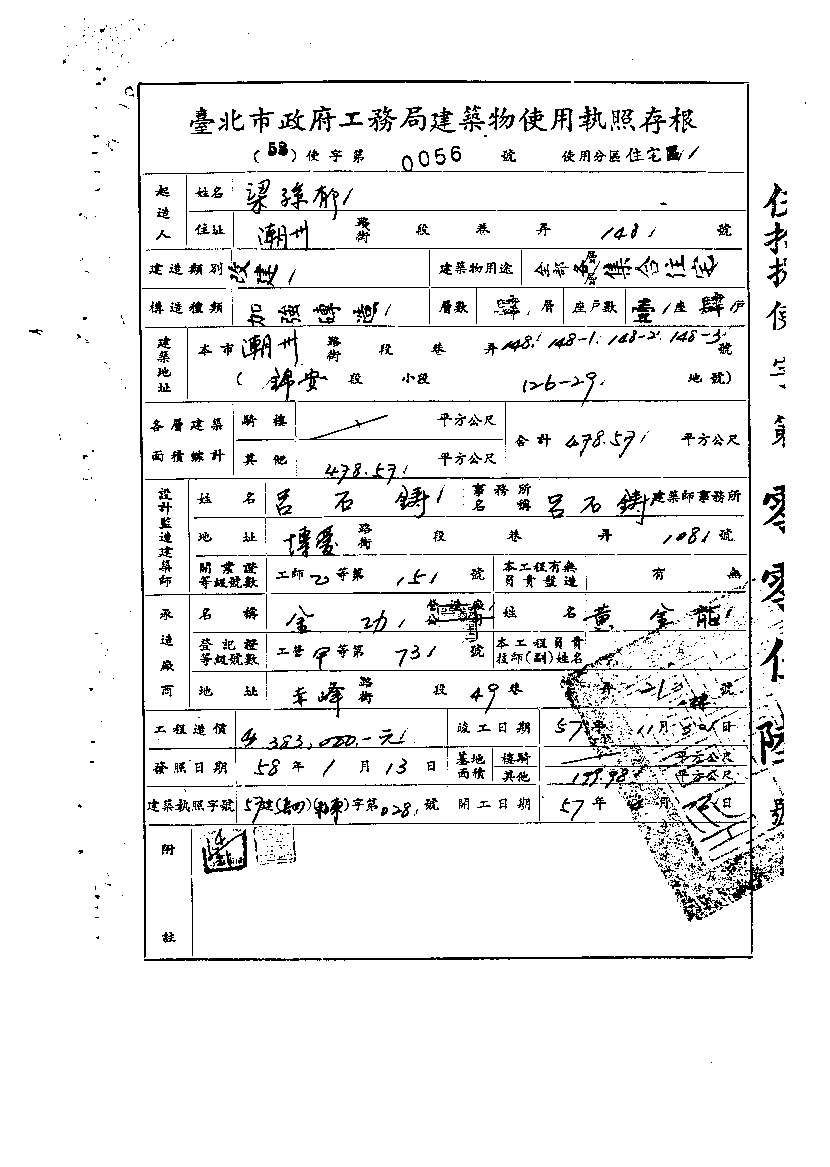 臺北市政府工務局建築物使用執照存根
(58)使字第 0056 號 使用分區住宅區
起造人 姓名 梁孫郁
住址 潮州 路街 段 巷 弄 148 號
建造類別 改建 建築物用途 全部各層集合住宅
構造種類 加強磚造 層數 肆 層 座戶數 壹 座 肆 戶
建築地址 本市 潮州 路街 段 巷 弄 148. 148-1. 148-2. 148-3 號
(錦安 段 小段 126-29 地號)
各層建築面積總計 騎樓 平方公尺 合計 478.57 平方公尺
其他 478.57 平方公尺
設計監造建築師 姓名 呂石鑄 事務所名稱 呂石鑄 建築師事務所
地址 博愛 路街 段 巷 弄 108 號
開業證等級號數 工師乙等第 151 號 本工程有無員責監造 有 無
承造廠商 名稱 金功 營造廠公司 姓名 黃金龍
登記證等級號數 工營甲等第 731 號 本工程員責技師(副)姓名
地址 赤峰 路街 段 49 巷 弄 21 號
工程造價 383,000.-元 竣工日期 57 年 11 月 日
發照日期 58 年 1 月 13 日 基地面積 樓騎 平方公尺
其他 199.98 平方公尺
建築執照字號 57建 字第 028 號 開工日期 57 年 月 日
附註
使字第零零伍陸號